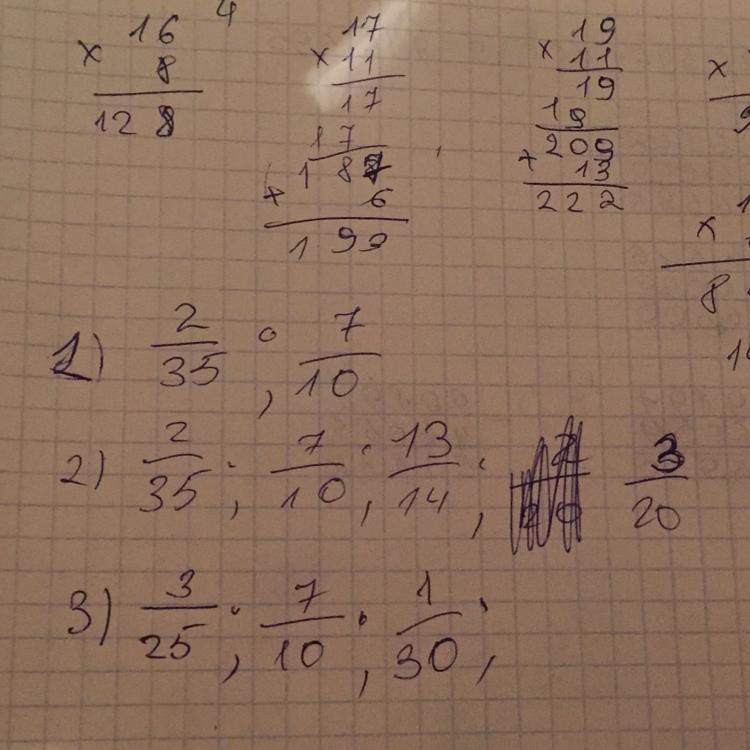 16 4
× 8
128
17
× 11
17
17
187
+ 6
199
19
× 11
19
19
209
+ 13
222
×
×
8
1) 2/35 ; 7/10
2) 2/35 ; 7/10 ; 13/14 ; 3/20
3) 3/25 ; 7/10 ; 1/30 ;